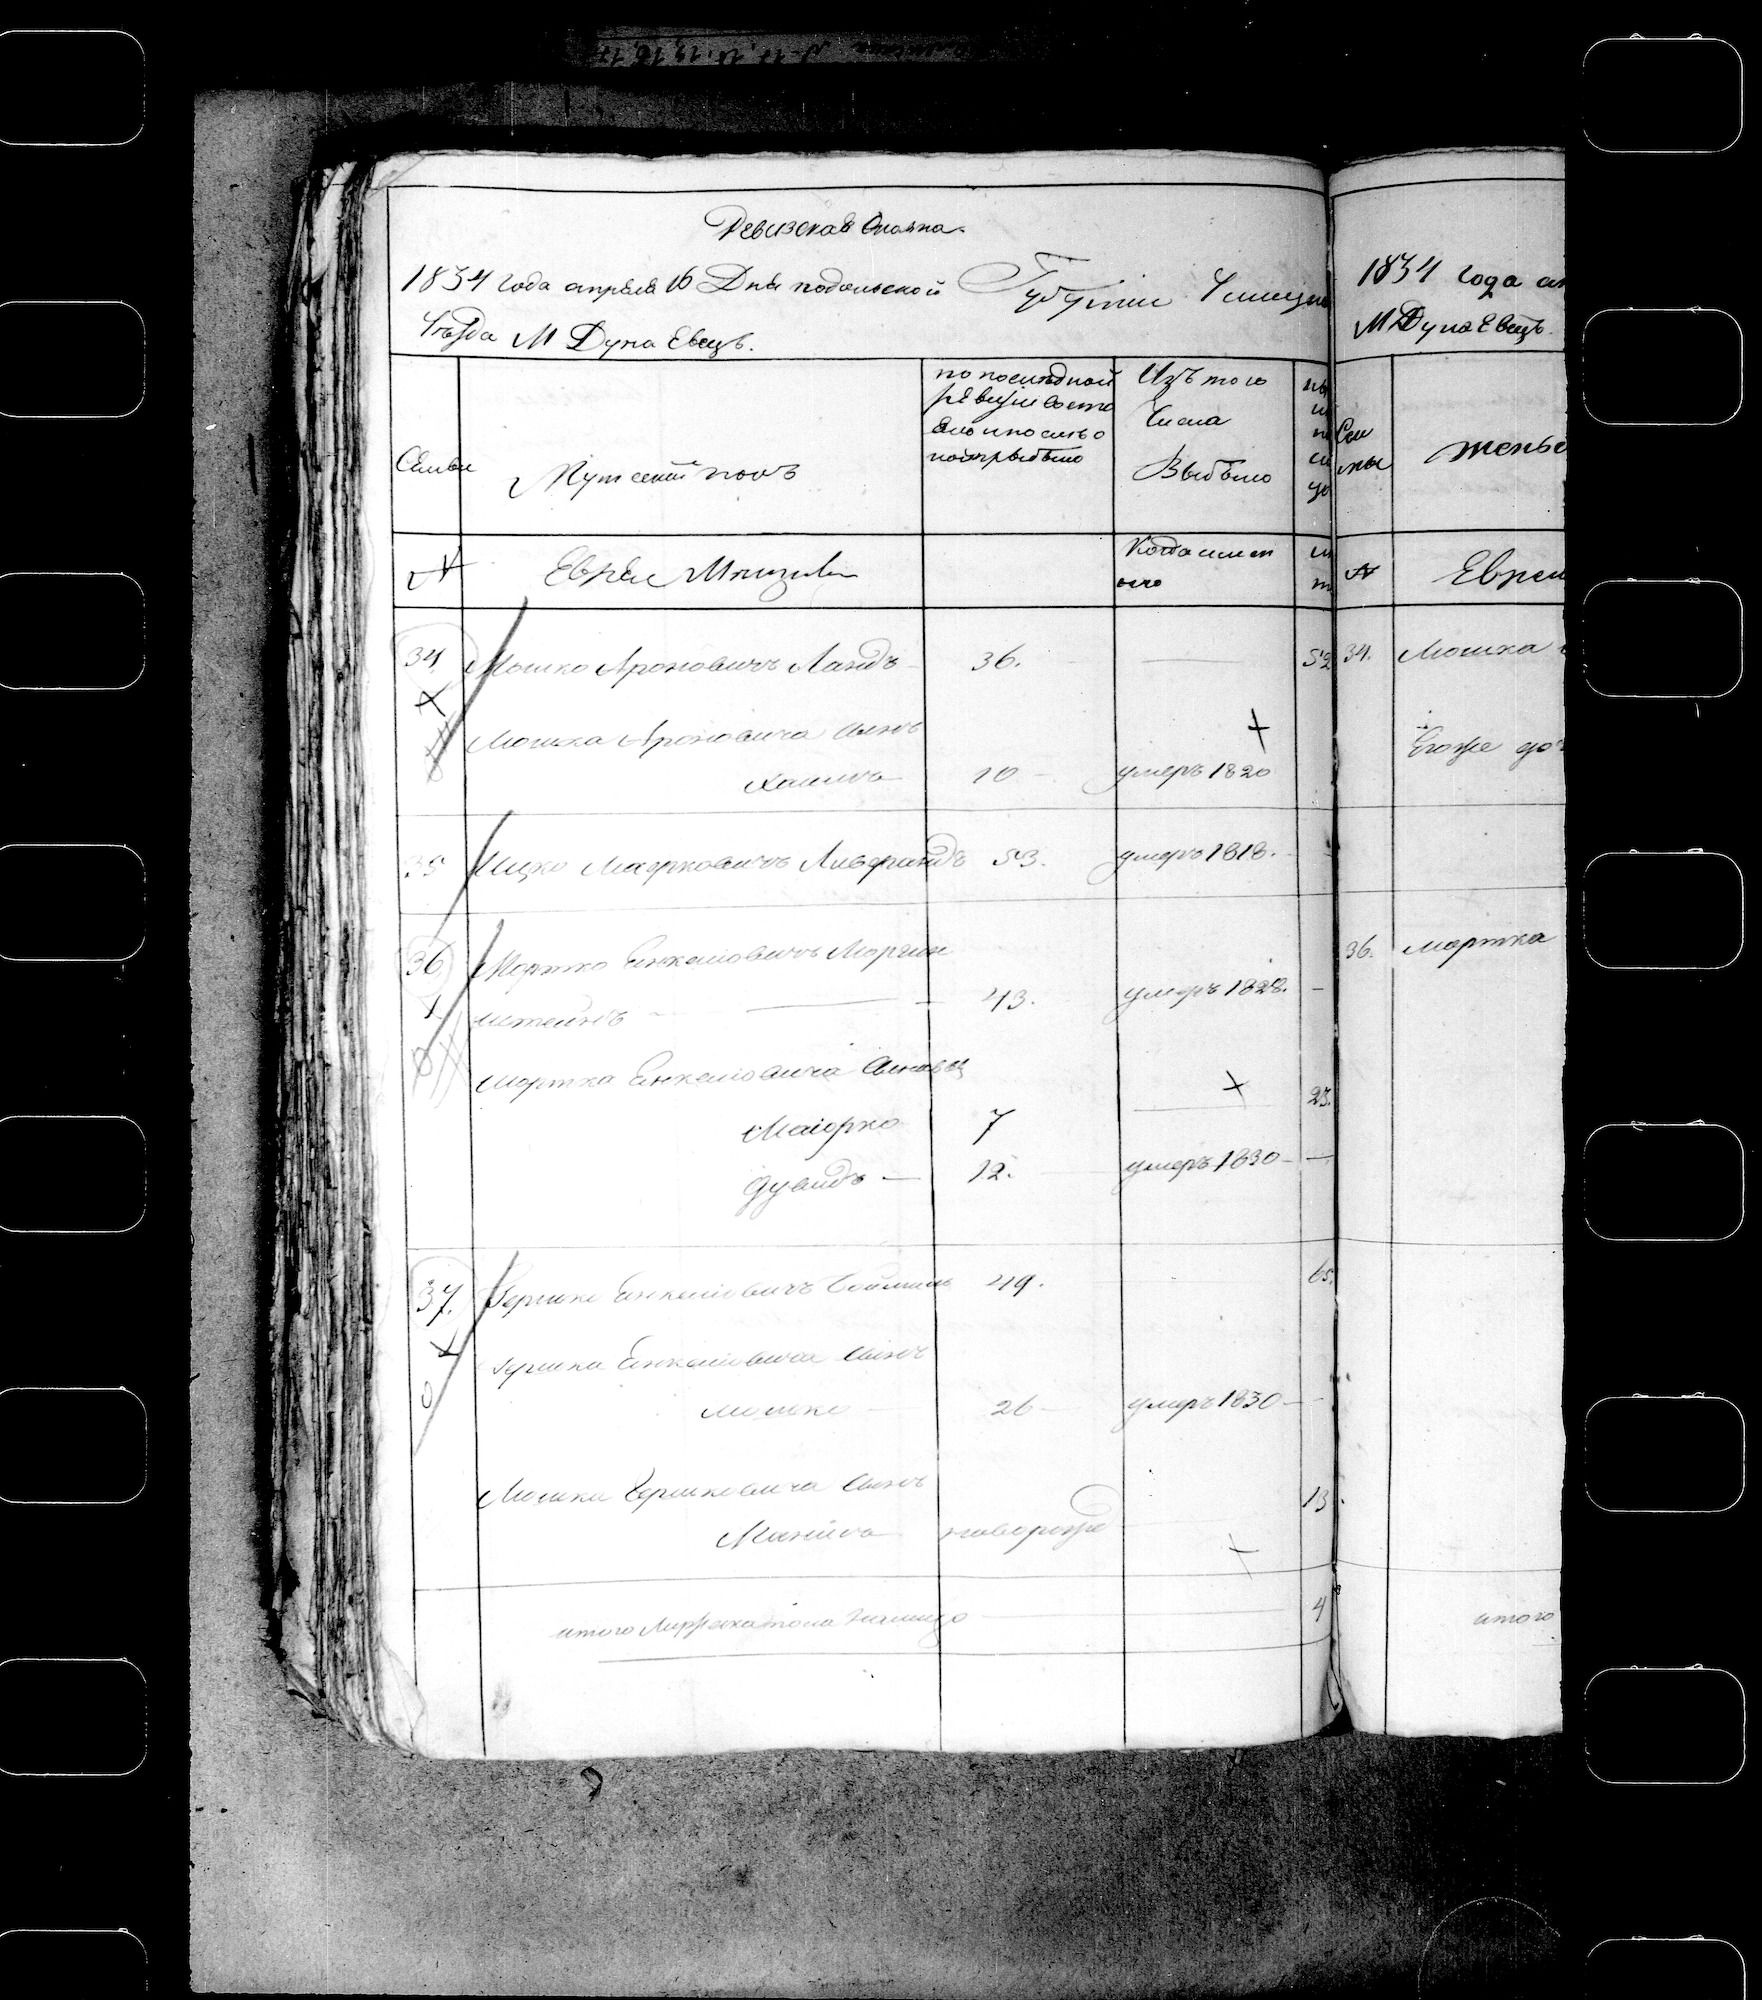 Ревизская Сказка.
1834 года апреля 16 Дня подольской Губернии Ушицкого
Уезда М Дуна Евецъ.
Семьи
Мужеский полъ
по последной
ревизіи состо
яло и после о
ной прибыло
Изъ того
Числа
Выбыло
№
Евреи Мещане
Когда имен
но
34
Мошко Ароновичъ Ландъ
36.
52
Мошка Ароновича сынъ
Хаимъ
10
умеръ 1820
35
Ицко Маерковичъ
53.
умеръ 1818.
36
Мортко Янкелиовичъ Морген
штейнъ
43.
умеръ 1828.
Мортка Янкелиовича сыновья
Маіорко
7
23.
Дувидъ
12.
умеръ 1830
37.
Гершко Янкелиовичъ
49.
65.
Гершка Янкелиовича сынъ
Мошко
26
умеръ 1830
Мошка Гершковича сынъ
новорожд
13
итого Мужеска пола на лицо
4
1834 года ап
М Дуна Евецъ.
Сем
женс
№
Евреи
34.
Мошка
Его же до
36.
Мортка
итого